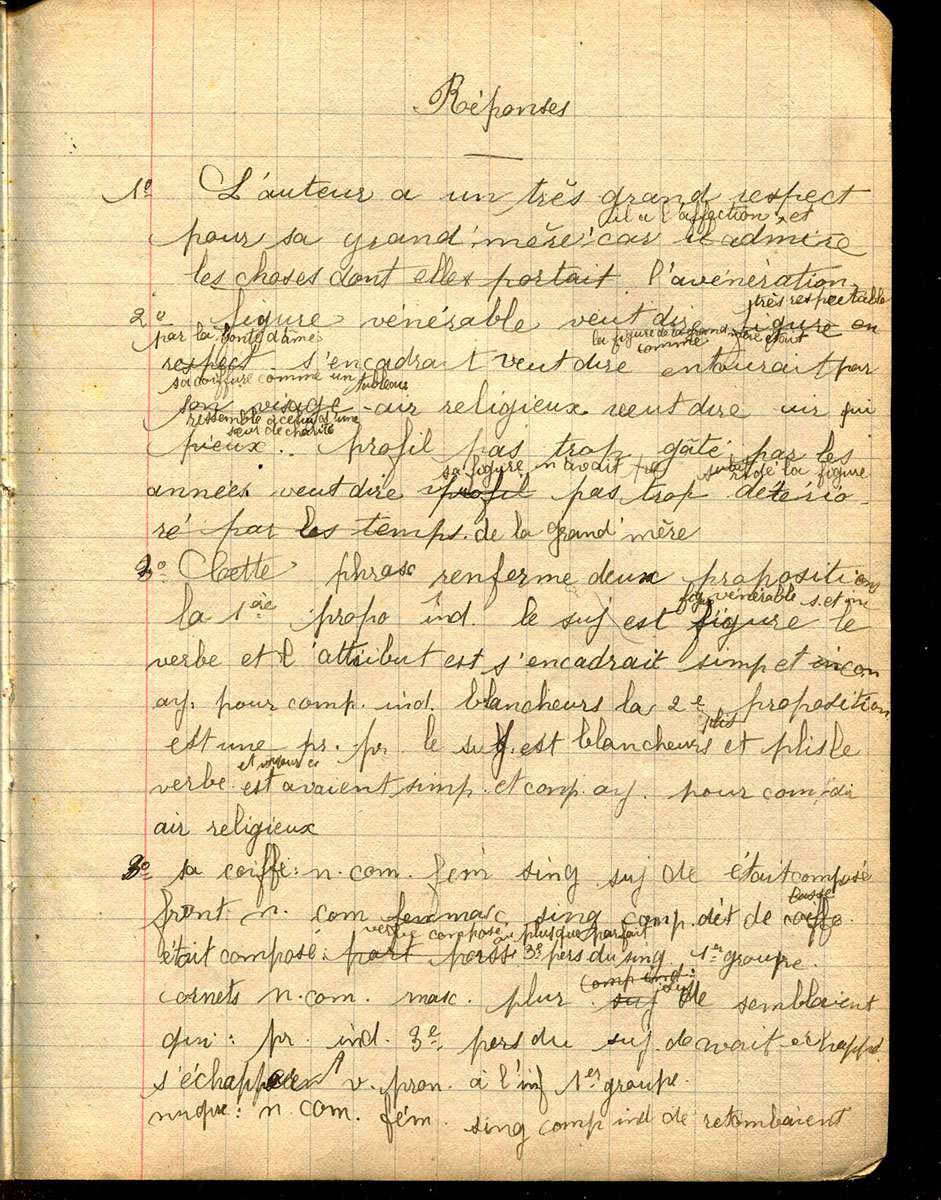 Réponses
1º L'auteur a un très grand respect
il a l'affection et
pour sa grand'mère car il admire
les choses dont elle portait l'avénération
très respectable
2º figure vénérable veut dire figure en
par la bonté d'âme
la figure de la grand mère était
comme
respect. s'encadrait veut dire entourait par
sa coiffure comme un tableau
son visage - air religieux veut dire air qui
ressemble à celui d'une
sœur de charité
pieux.. profil pas trop gâté par les
sa figure n'avait pas
de la figure
années veut dire profil pas trop détério-
ré par les temps. de la grand'mère
3º Cette phrase renferme deux propositions
vénérable s. et inc
la 1ère propo ind. le suj est figure le
verbe et l'attribut est s'encadrait simp et incom
ay. pour comp. ind. blancheurs la 2e proposition
plis
est une pr. pr. le suj. est blancheurs et plis le
verbe est avaient simp. et comp. ay. pour com. di
air religieux
3º sa coiffe: n. com. fém sing suj de était composé
basse
front n. com fem masc. sing comp. dét de coiffe.
verbe composé au plus que parfait
était composé: part passé 3e pers du sing 1er groupe.
comp ind.
suj
cornets n. com. masc. plur suj de semblaient
qui: pr. ind. 3e pers du suj. de
s'échapper v. pron. à l'inf 1er groupe.
nuque: n. com. fém. sing comp ind de retombaient